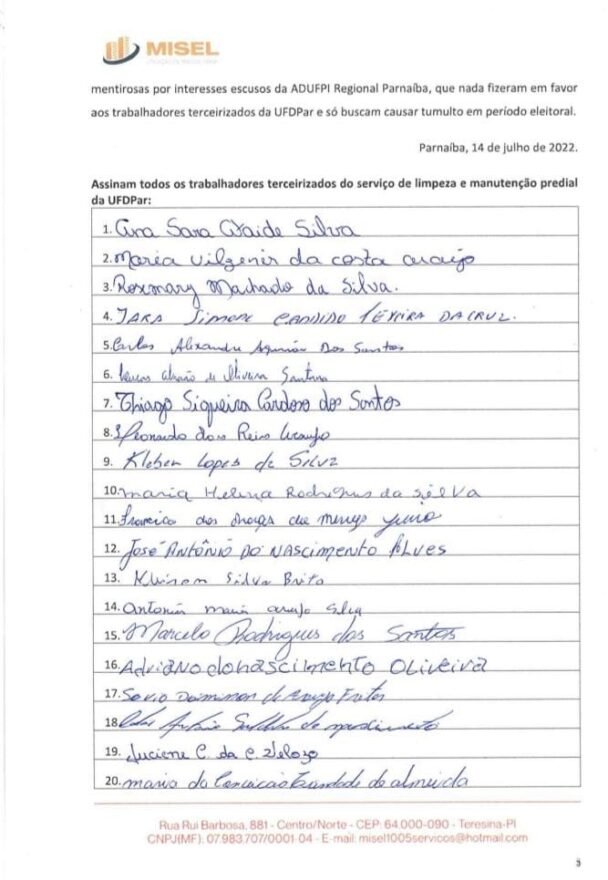 MISEL
mentirosas por interesses escusos da ADUFPI Regional Parnaíba, que nada fizeram em favor
aos trabalhadores terceirizados da UFDPar e só buscam causar tumulto em período eleitoral.
Parnaíba, 14 de julho de 2022.
Assinam todos os trabalhadores terceirizados do serviço de limpeza e manutenção predial
da UFDPar:
1. Ana Sara Ataide Silva
2. Maria Vilgenir da costa araujo
3. Rosemary Machado da Silva.
4. IARA Simone CANDIDO TEXEIRA DA CRUZ.
5. Carlos Alexandre Dos Santos
6. de Oliveira Santana
7. Thiago Siqueira Cardoso dos Santos
8. Leonardo dos Reis Araujo
9. Kleber Lopes de Silva
10. Maria Helena Rodrigues da silva
11. Francisco das chagas de
12. José ANTÔNIO DO NASCIMENTO ALVES
13. Silva Brito
14. Antonia maria araujo Silva
15. Marcelo Rodrigues dos Santos
16. Adriano do nascimento OLIVEIRA
17. de Araujo
18. Antônio do nascimento
19. Luciene C. da C. Veloso
20. maria da Conceicao trandade de almeida
Rua Rui Barbosa, 881 - Centro/Norte - CEP: 64.000-090 - Teresina-PI
CNPJ(MF): 07.983.707/0001-04 - E-mail: misel1005servicos@hotmail.com
3